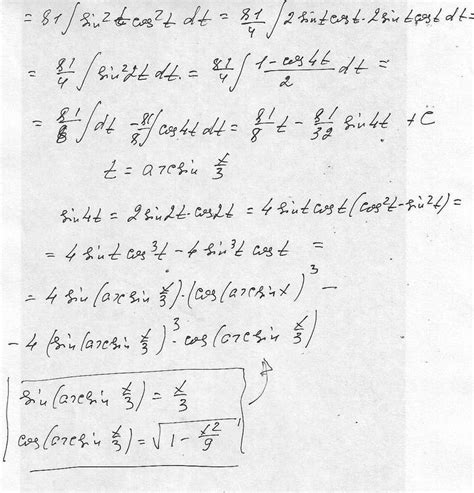 = 81 ∫ sin²t cos²t dt = 81/4 ∫ 2sint cost · 2sint cost dt =
= 81/4 ∫ sin²2t dt = 81/4 ∫ (1 - cos4t)/2 dt =
= 81/8 ∫ dt - 81/8 ∫ cos4t dt = 81/8 t - 81/32 sin4t + C
t = arcsin x/3
sin4t = 2sin2t · cos2t = 4sint cost (cos²t - sin²t) =
= 4 sint cos³t - 4 sin³t cost =
= 4 sin(arcsin x/3) · (cos(arcsin x)³ -
- 4 (sin(arcsin x/3)³ · cos(arcsin x/3)
sin(arcsin x/3) = x/3
cos(arcsin x/3) = √(1 - x²/9)